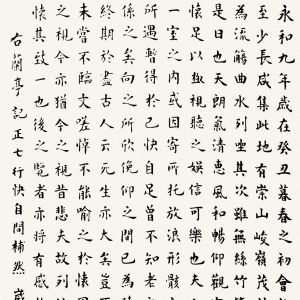 永和九年歲在癸丑暮春之初會
至少長咸集此地有崇山峻嶺茂
為流觴曲水列坐其次雖無絲竹
是日也天朗氣清惠風和暢仰
懷足以極視聽之娛信可樂也夫
一室之內或因寄所托放浪形骸
所遇暫得於己快自足曾不知老
係之矣向之所欣俛仰之間已為
終期於盡古人云死生亦大矣
未嘗不臨文嗟悼不能喻之於懷固
之視今亦猶今之視昔悲夫故列
懷其致一也後之覽者亦將有感
右蘭亭記正七行快自補然